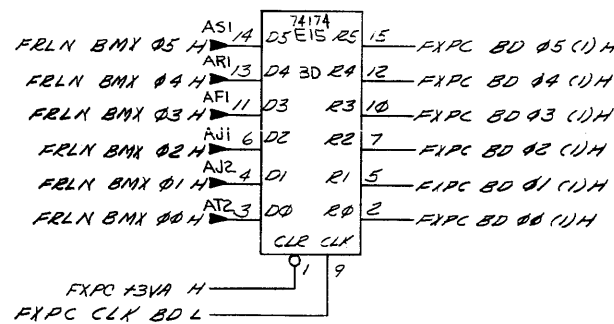 74174
AS1 E15
FRLN BMX Ø5 H 14 D5 R5 15 FXPC BD Ø5 (1) H
AR1
FRLN BMX Ø4 H 13 D4 3D R4 12 FXPC BD Ø4 (1) H
AF1
FRLN BMX Ø3 H 11 D3 R3 10 FXPC BD Ø3 (1) H
AJ1
FRLN BMX Ø2 H 6 D2 R2 7 FXPC BD Ø2 (1) H
AJ2
FRLN BMX Ø1 H 4 D1 R1 5 FXPC BD Ø1 (1) H
AT2
FRLN BMX ØØ H 3 DØ RØ 2 FXPC BD ØØ (1) H
CLR CLK
1 9
FXPC +3VA H
FXPC CLK BD L